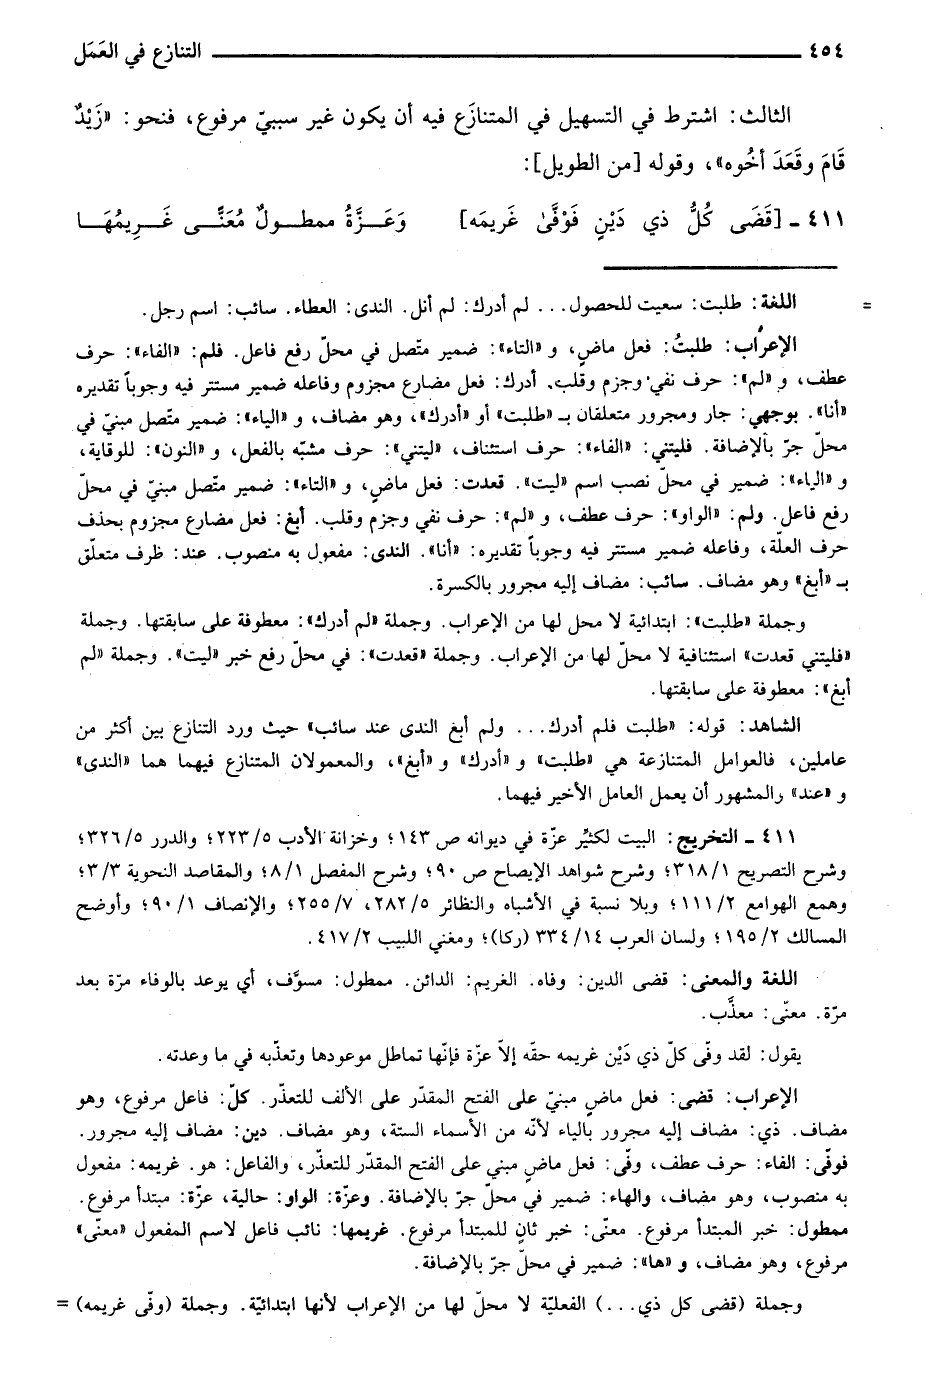 ٤٥٤ التنازع في العَمَل
الثالث: اشترط في التسهيل في المتنازَع فيه أن يكون غير سببيّ مرفوع، فنحو: «زَيْدٌ
قَامَ وقَعَدَ أخُوه»، وقوله [من الطويل]:
٤١١ ـ [قَضَى كُلُّ ذي دَيْنٍ فَوْفَّىٰ غَريمَه] وَعَـزَّةُ ممطـولٌ مُعَنًّـى غَـرِيمُهَـا
= اللغة: طلبت: سعيت للحصول... لم أدرك: لم أنل. الندى: العطاء. سائب: اسم رجل.
الإعراب: طلبتُ: فعل ماضٍ، و «التاء»: ضمير متّصل في محلّ رفع فاعل. فلم: «الفاء»: حرف
عطف، و «لم»: حرف نفي وجزم وقلب. أدرك: فعل مضارع مجزوم وفاعله ضمير مستتر فيه وجوباً تقديره
«أنا». بوجهي: جار ومجرور متعلقان بـ «طلبت» أو «أدرك»، وهو مضاف، و «الياء»: ضمير متّصل مبنيّ في
محلّ جرّ بالإضافة. فليتني: «الفاء»: حرف استئناف، «ليتني»: حرف مشبّه بالفعل، و «النون»: للوقاية،
و «الياء»: ضمير في محلّ نصب اسم «ليت». قعدت: فعل ماضٍ، و «التاء»: ضمير متّصل مبنيّ في محلّ
رفع فاعل. ولم: «الواو»: حرف عطف، و «لم»: حرف نفي وجزم وقلب. أبغِ: فعل مضارع مجزوم بحذف
حرف العلّة، وفاعله ضمير مستتر فيه وجوباً تقديره: «أنا». الندى: مفعول به منصوب. عند: ظرف متعلّق
بـ «أبغ» وهو مضاف. سائب: مضاف إليه مجرور بالكسرة.
وجملة «طلبت»: ابتدائية لا محل لها من الإعراب. وجملة «لم أدرك»: معطوفة على سابقتها. وجملة
«فليتني قعدت» استئنافية لا محلّ لها من الإعراب. وجملة «قعدت»: في محلّ رفع خبر «ليت». وجملة «لم
أبغ»: معطوفة على سابقتها.
الشاهد: قوله: «طلبت فلم أدرك... ولم أبغ الندى عند سائب» حيث ورد التنازع بين أكثر من
عاملين، فالعوامل المتنازعة هي «طلبت» و «أدرك» و «أبغ»، والمعمولان المتنازع فيهما هما «الندى»
و «عند» والمشهور أن يعمل العامل الأخير فيهما.
٤١١ ـ التخريج: البيت لكثيِّر عزّة في ديوانه ص ١٤٣؛ وخزانة الأدب ٥/ ٢٢٣؛ والدرر ٥/ ٣٢٦؛
وشرح التصريح ١/ ٣١٨؛ وشرح شواهد الإيضاح ص ٩٠؛ وشرح المفصل ١/ ٨؛ والمقاصد النحوية ٣/ ٣؛
وهمع الهوامع ٢/ ١١١؛ وبلا نسبة في الأشباه والنظائر ٥/ ٢٨٢، ٧/ ٢٥٥؛ والإنصاف ١/ ٩٠؛ وأوضح
المسالك ٢/ ١٩٥؛ ولسان العرب ١٤/ ٣٣٤ (ركا)؛ ومغني اللبيب ٢/ ٤١٧.
اللغة والمعنى: قضى الدين: وفاه. الغريم: الدائن. ممطول: مسوَّف، أي يوعد بالوفاء مرّة بعد
مرّة. معنّى: معذَّب.
يقول: لقد وفّى كلّ ذي دَيْن غريمه حقّه إلاّ عزّة فإنّها تماطل موعودها وتعذّبه في ما وعدته.
الإعراب: قضى: فعل ماضٍ مبنيّ على الفتح المقدّر على الألف للتعذّر. كلّ: فاعل مرفوع، وهو
مضاف. ذي: مضاف إليه مجرور بالياء لأنّه من الأسماء الستة، وهو مضاف. دين: مضاف إليه مجرور.
فوفّى: الفاء: حرف عطف، وفّى: فعل ماضٍ مبني على الفتح المقدّر للتعذّر، والفاعل: هو. غريمه: مفعول
به منصوب، وهو مضاف، والهاء: ضمير في محلّ جرّ بالإضافة. وعزّة: الواو: حالية، عزّة: مبتدأ مرفوع.
ممطول: خبر المبتدأ مرفوع. معنّى: خبر ثانٍ للمبتدأ مرفوع. غريمها: نائب فاعل لاسم المفعول «معنّى»
مرفوع، وهو مضاف، و «ها»: ضمير في محلّ جرّ بالإضافة.
وجملة (قضى كل ذي...) الفعليّة لا محلّ لها من الإعراب لأنها ابتدائيّة. وجملة (وفّى غريمه) =